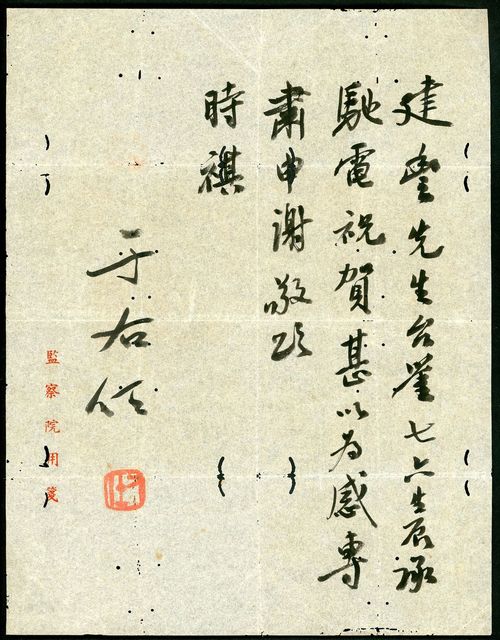 建豐先生台鑒七六生辰承
馳電祝賀甚以為感專
肅申謝敬頌
時祺
于右任
監察院用箋